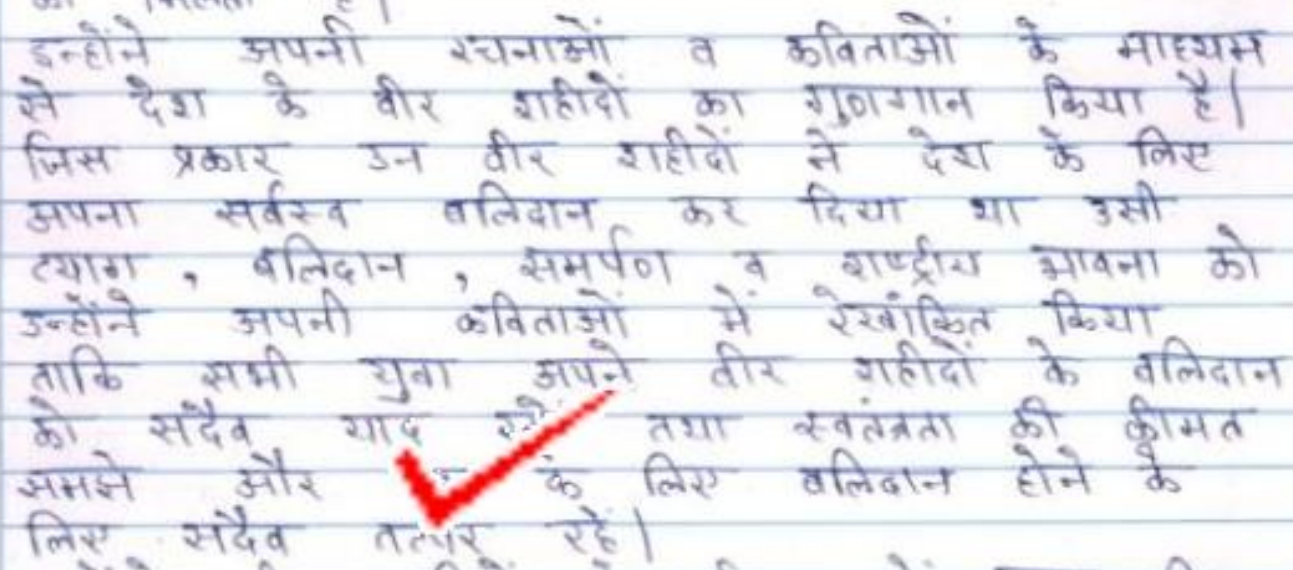 इन्होंने अपनी रचनाओं व कविताओं के माध्यम
से देश के वीर शहीदों का गुणगान किया है।
जिस प्रकार उन वीर शहीदों ने देश के लिए
अपना सर्वस्व बलिदान कर दिया था उसी
त्याग , बलिदान , समर्पण व राष्ट्रीय भावना को
उन्होंने अपनी कविताओं में रेखांकित किया
ताकि सभी युवा अपने वीर शहीदों के बलिदान
को सदैव याद तथा स्वतंत्रता की कीमत
समझे और के लिए बलिदान होने के
लिए सदैव तत्पर रहें।